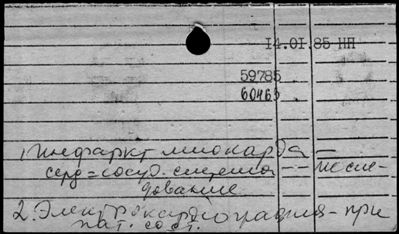 14.01.85 НП
59785
60465
1. Инфаркт миокарда —
серд=сосуд. система -- исследование
2. Электрокардиография - при
пат. сост.